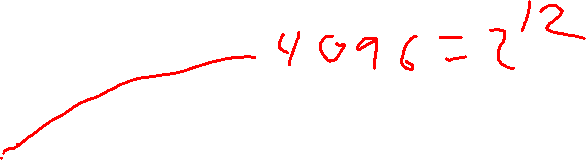 4096 = 2^12